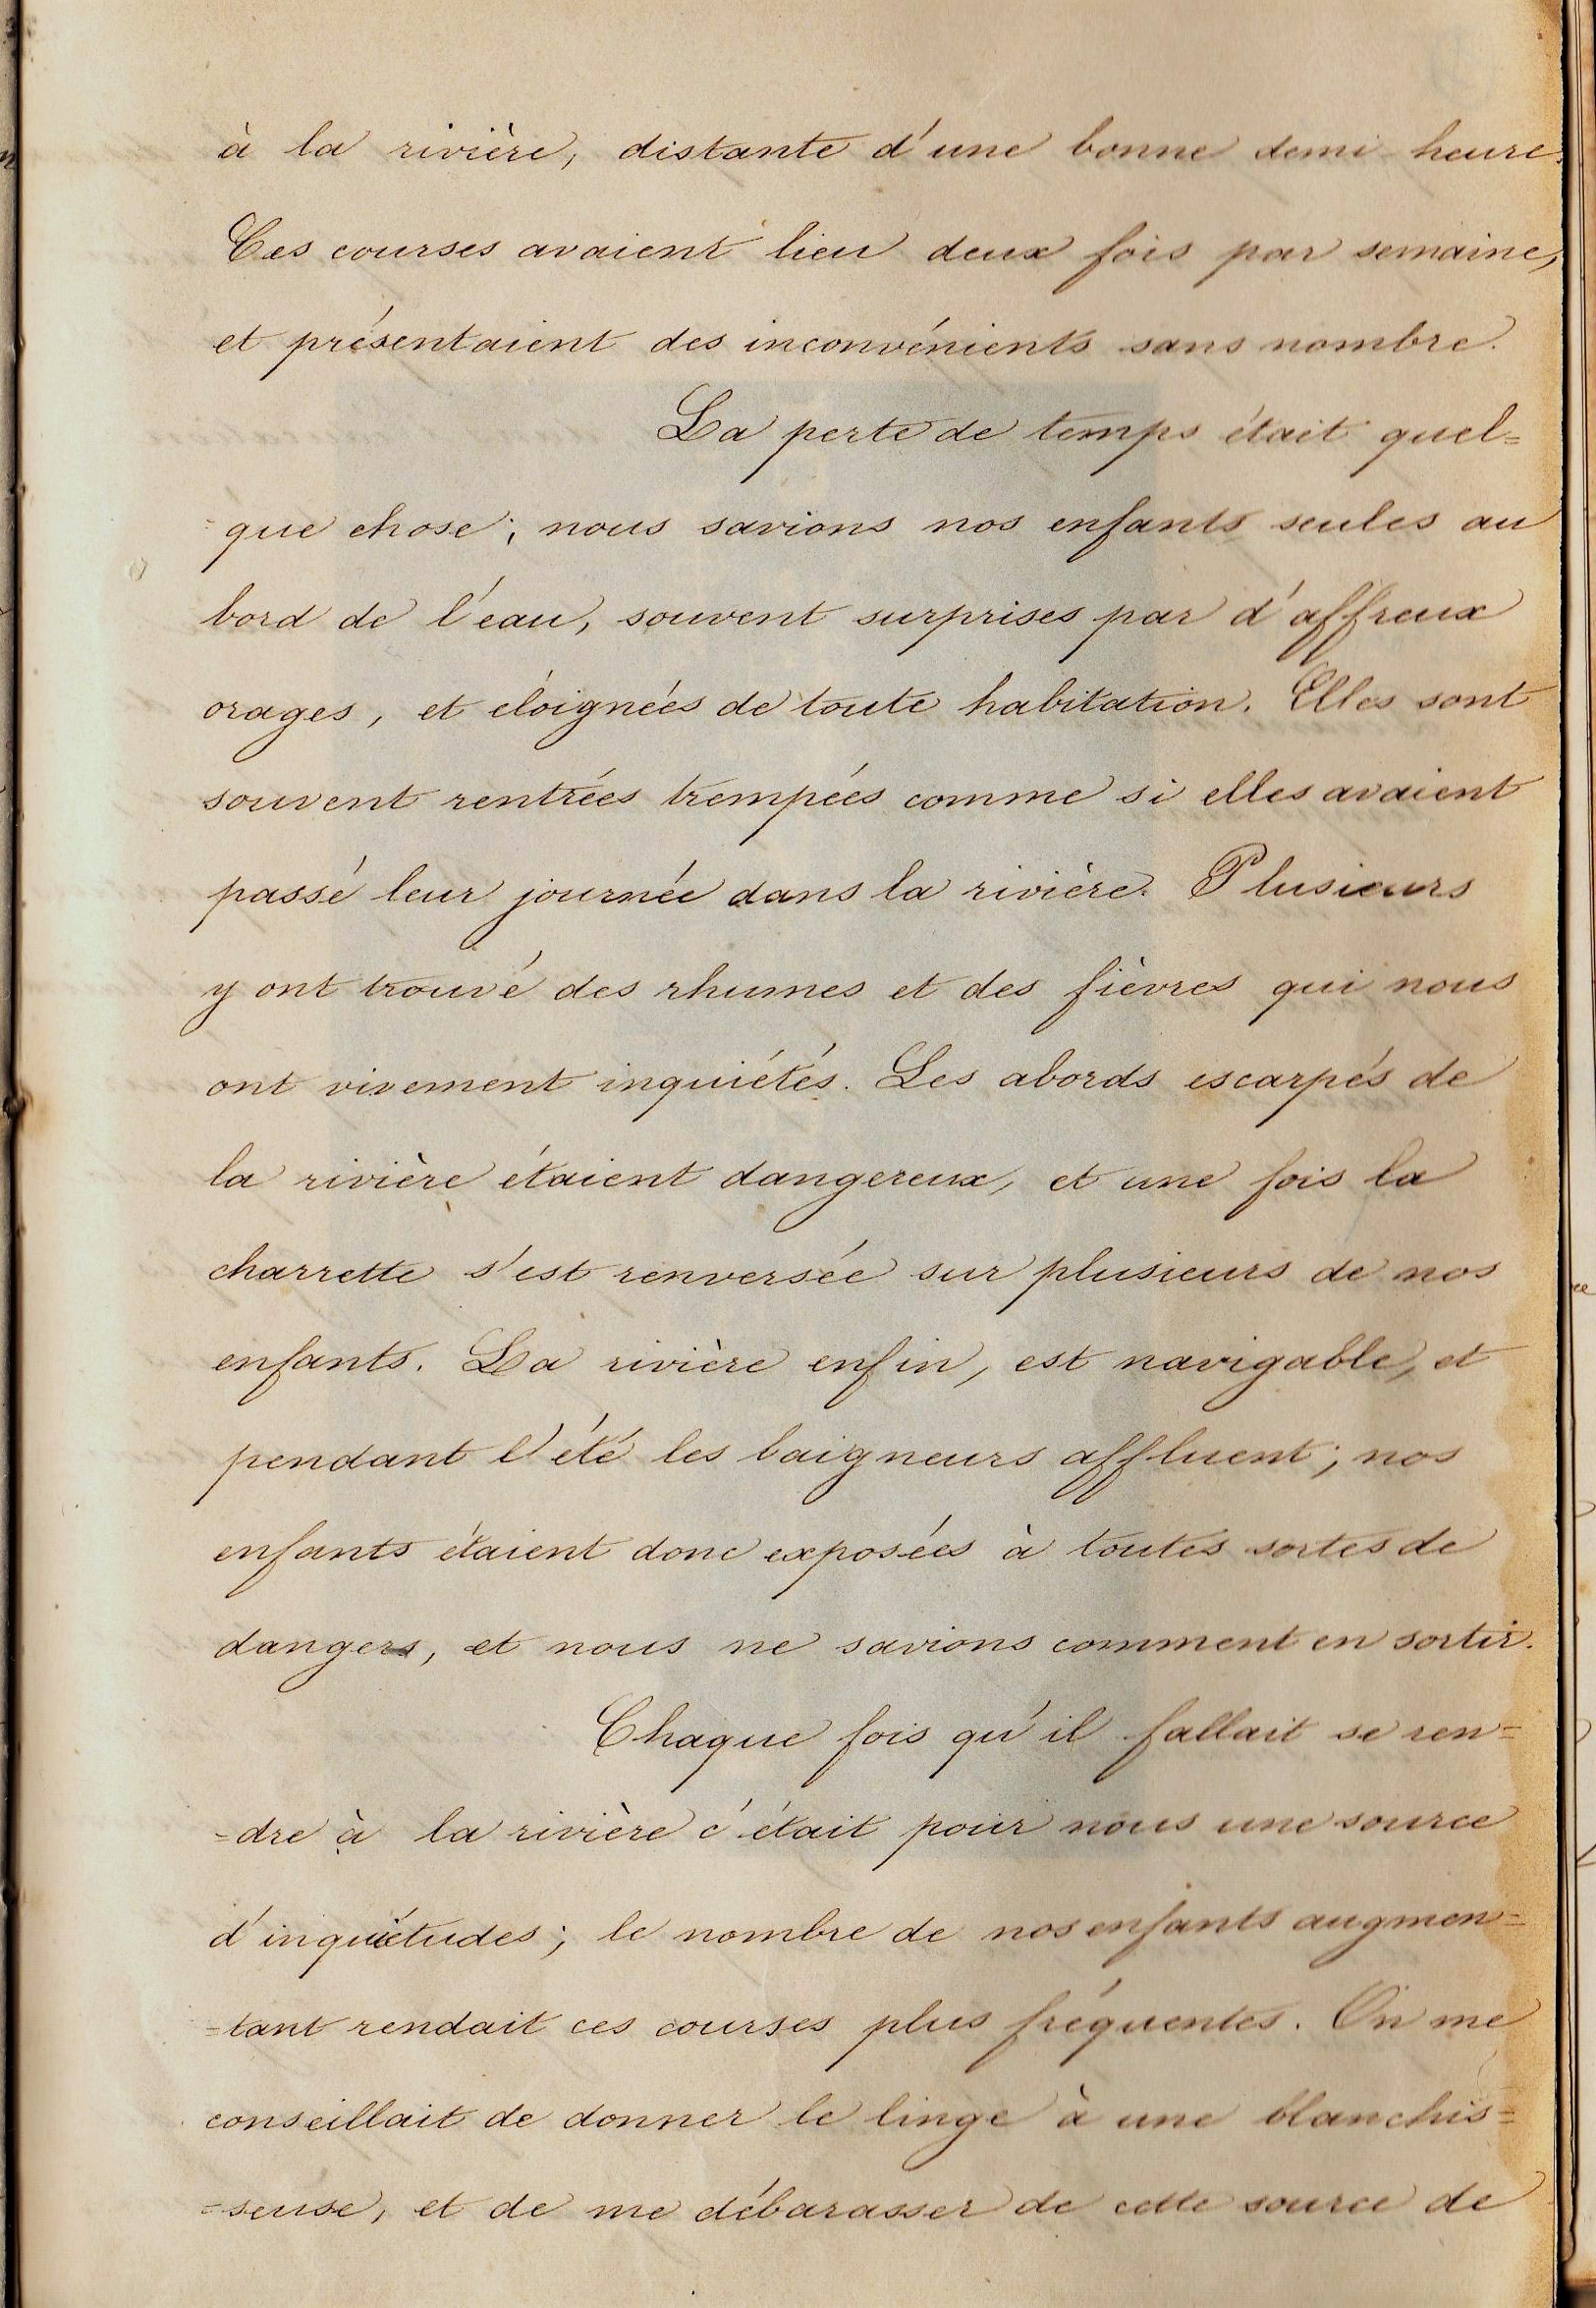 à la rivière, distante d'une bonne demi-heure.
Ces courses avaient lieu deux fois par semaine,
et présentaient des inconvénients sans nombre.
La perte de temps était quel=
=que chose; nous savions nos enfants seules au
bord de l'eau, souvent surprises par d'affreux
orages, et éloignées de toute habitation. Elles sont
souvent rentrées trempées comme si elles avaient
passé leur journée dans la rivière. Plusieurs
y ont trouvé des rhumes et des fièvres qui nous
ont vivement inquiétés. Les abords escarpés de
la rivière étaient dangereux, et une fois la
charrette s'est renversée sur plusieurs de nos
enfants. La rivière enfin, est navigable, et
pendant l'été les baigneurs affluent; nos
enfants étaient donc exposées à toutes sortes de
dangers, et nous ne savions comment en sortir.
Chaque fois qu'il fallait se ren=
=dre à la rivière c'était pour nous une source
d'inquiétudes; le nombre de nos enfants augmen=
=tant rendait ces courses plus fréquentes. On me
conseillait de donner le linge à une blanchis=
=seuse, et de me débarasser de cette source de